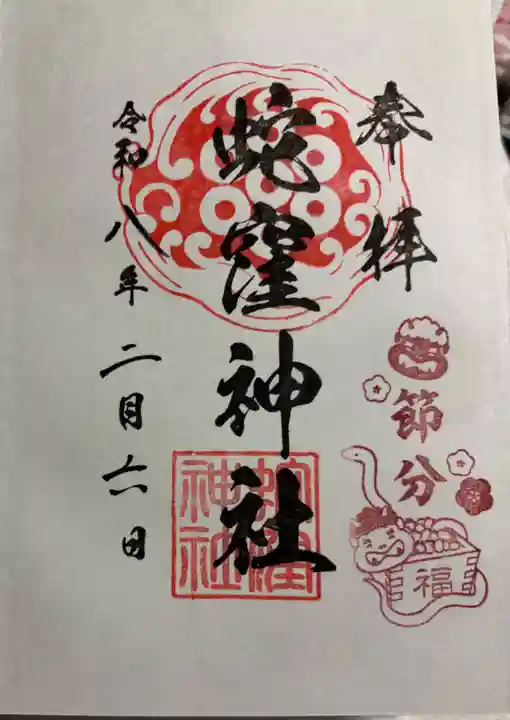 奉拝
蛇窪神社
蛇窪神社
令和八年二月六日
節分
福